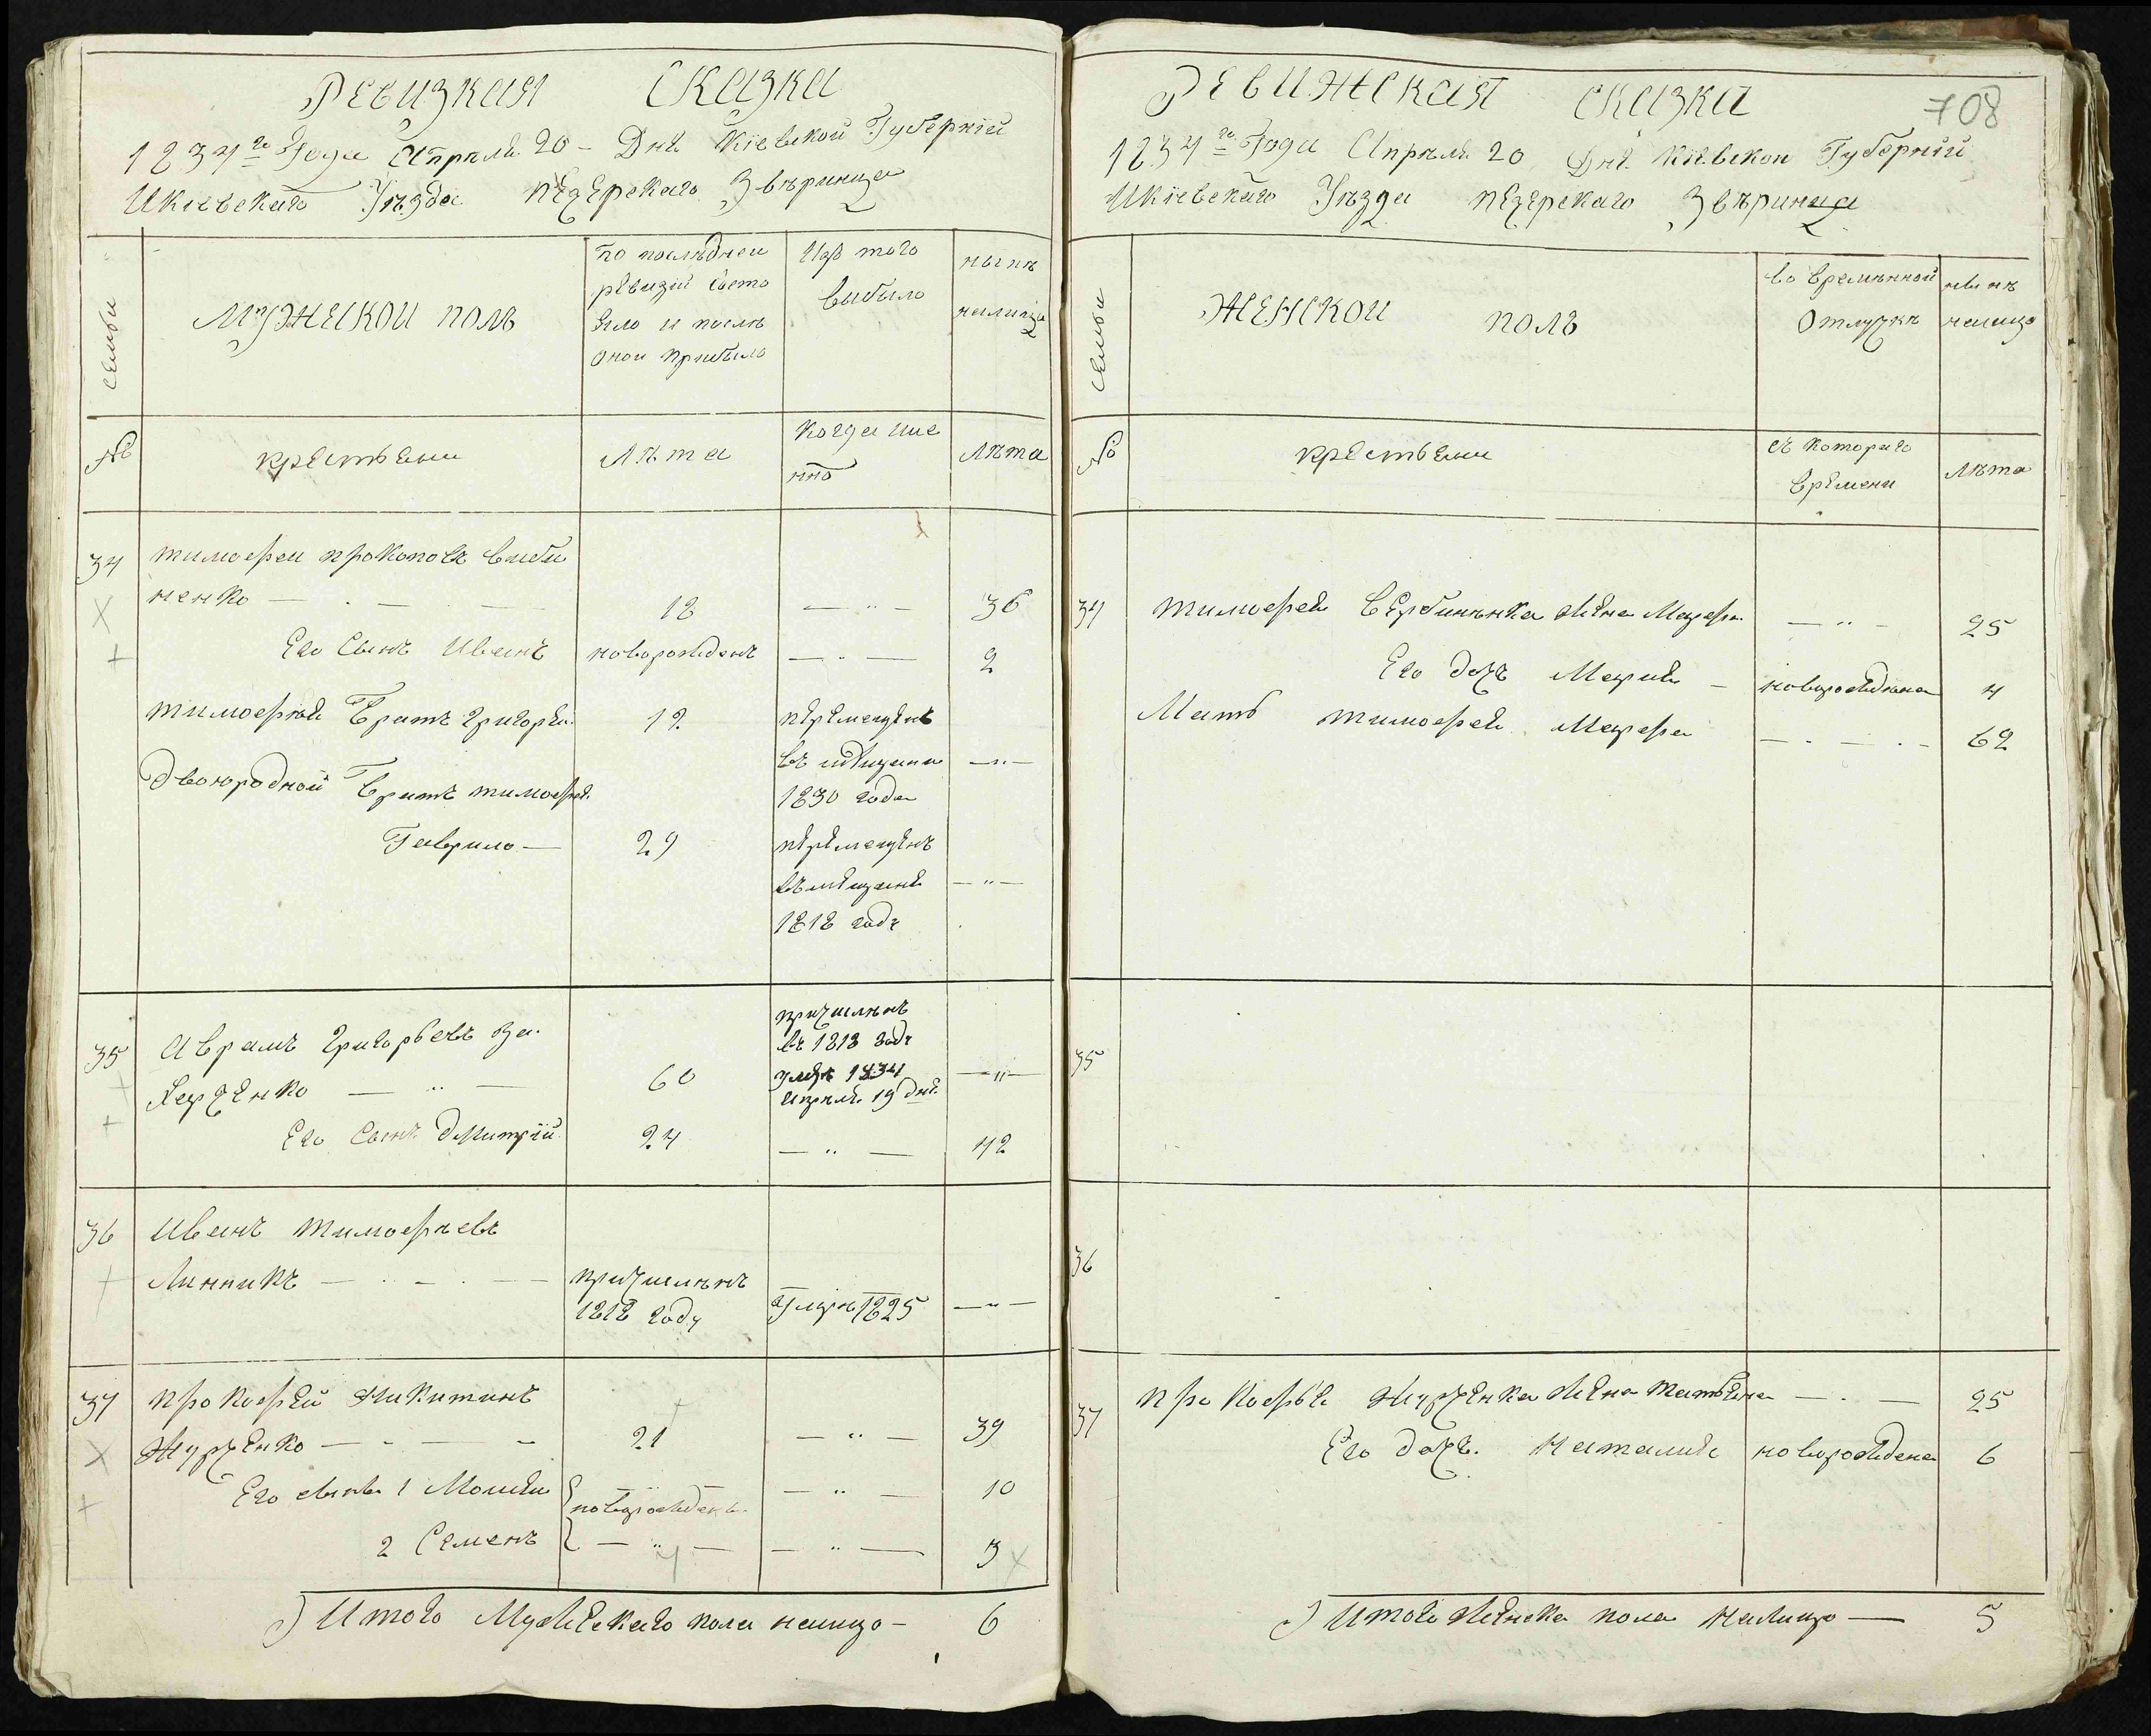 Ревизкая Сказка
1834го Года Апреля 20 - Дня Кіевской Губерніи
Икіевскаго Уѣзда печерскаго Звѣринца
семьи
мужеской полъ
по последнеи
ревизіи состо
яло и послѣ
оной прибыло
Изъ того
выбыло
нынѣ
налицо
№
крестьяни
Лѣта
Когда име
нно
Лѣта
34
тимофеи прокоповъ
ненко
18
36
Его Сынъ Иванъ
новорожденъ
2
тимофея Братъ григорей
19
перемещенъ
1830 года
двоюродной Братъ тимофея
Гаврило
29
перемещенъ
въ мещане
1818 годѣ
35
Аврамъ григорьевъ За
харченко
60
причисленъ
въ 1818 годѣ
умре 1834
Апреля 19 дня
Его Сынъ Дмитрій
24
42
36
Иванъ тимофеевъ
Линникъ
причисленъ
1818 году
умре 1825
37
прокофей Никитинъ
Журченко
21
39
Его сыновья 1 Моисеи
новорожденъ
10
2 Семенъ
3
Итого Мужескаго пола налицо - 6
708
Ревижская сказка
1834го Года Апреля 20 Дня Кіевской Губерніи
Икіевскаго Уѣзда печерскаго Звѣринца
семьи
Женской полъ
во временной
отлучкѣ
нынѣ
налицо
№
крестьяни
съ котораго
времени
Лѣта
34
тимофея Вербиненка жена Марфа
25
Его дочь Мария
новорожденна
4
Мать тимофея Марфа
62
35
36
37
прокофья Журченка жена татьяна
25
Его дочь Наталия
новорождена
6
Итого женска пола налицо — 5